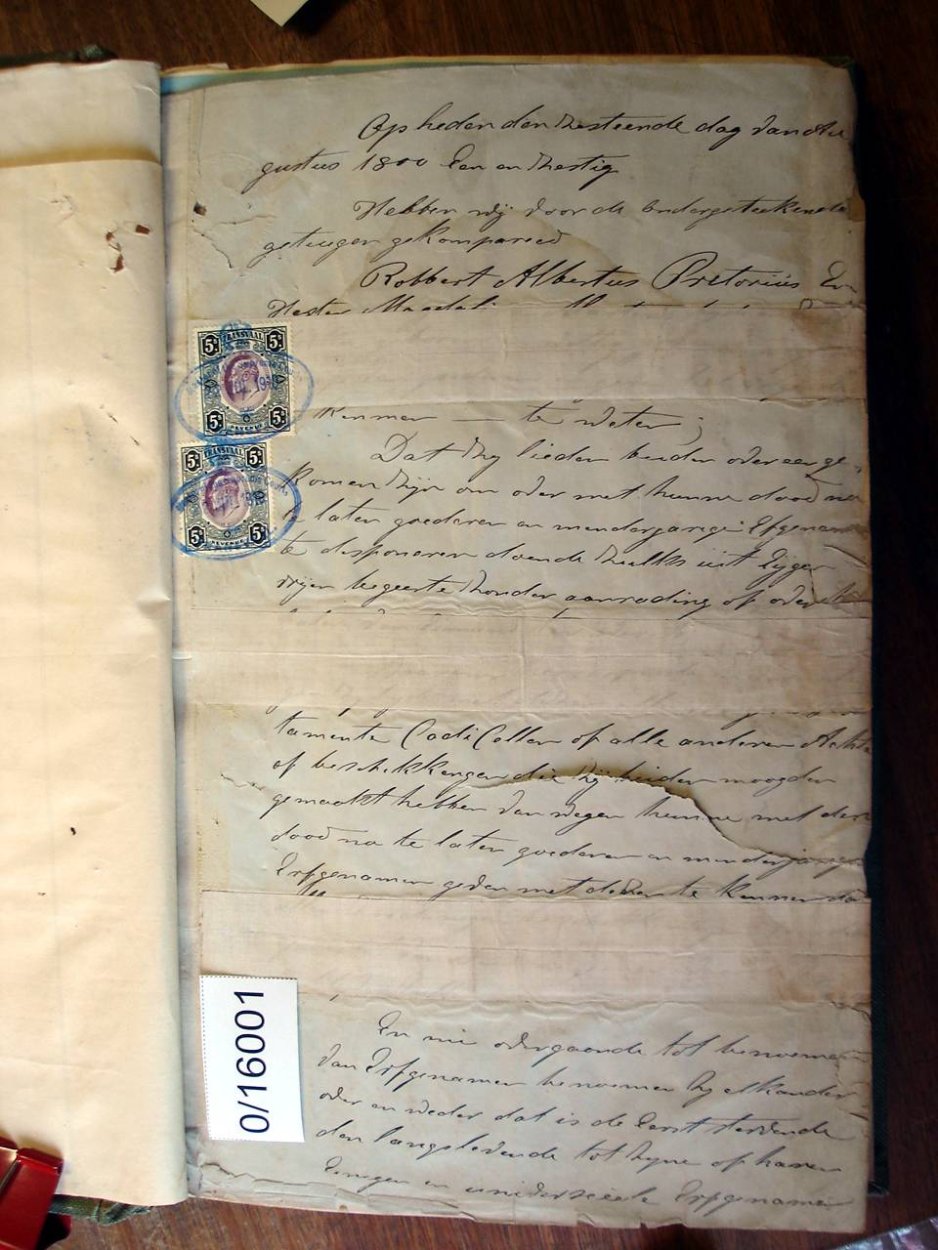 Op heden den Zestiende dag van Au
gustus 1800 Een en Zestig
Hebben wij voor de Ondergeteekende
getuigen gekompareed
Robbert Albertus Pretorius En
Hester
TRANSVAAL
5/-
5/-
5/-
5/-
REVENUE
kennen — te weten ;
TRANSVAAL
5/-
5/-
5/-
5/-
REVENUE
Dat Zy lieden beiden overeenge
komen Zijn om over met hunne dood na
te laten goederen en minderjarige Erfgenam
te disponeren doende Zulks uit Eyger
vrijen begeerte Zonder aanrading of
tamente Codicellen of alle anderen Ackte
of beschikkengen die Zij lieden moogden
gemaakt hebben van wegen hunne met der
dood na te laten goederen en minderjarigen
Erfgenamen geven met dezen te kennen da
0/16001
En nu overgaande tot benoemen
van Erfgenamen benoemen Zy elkander
over en weder dat is de Eerst stervende
den langslevende tot Zyne of haren
Enigen en universeele Erfgenamen